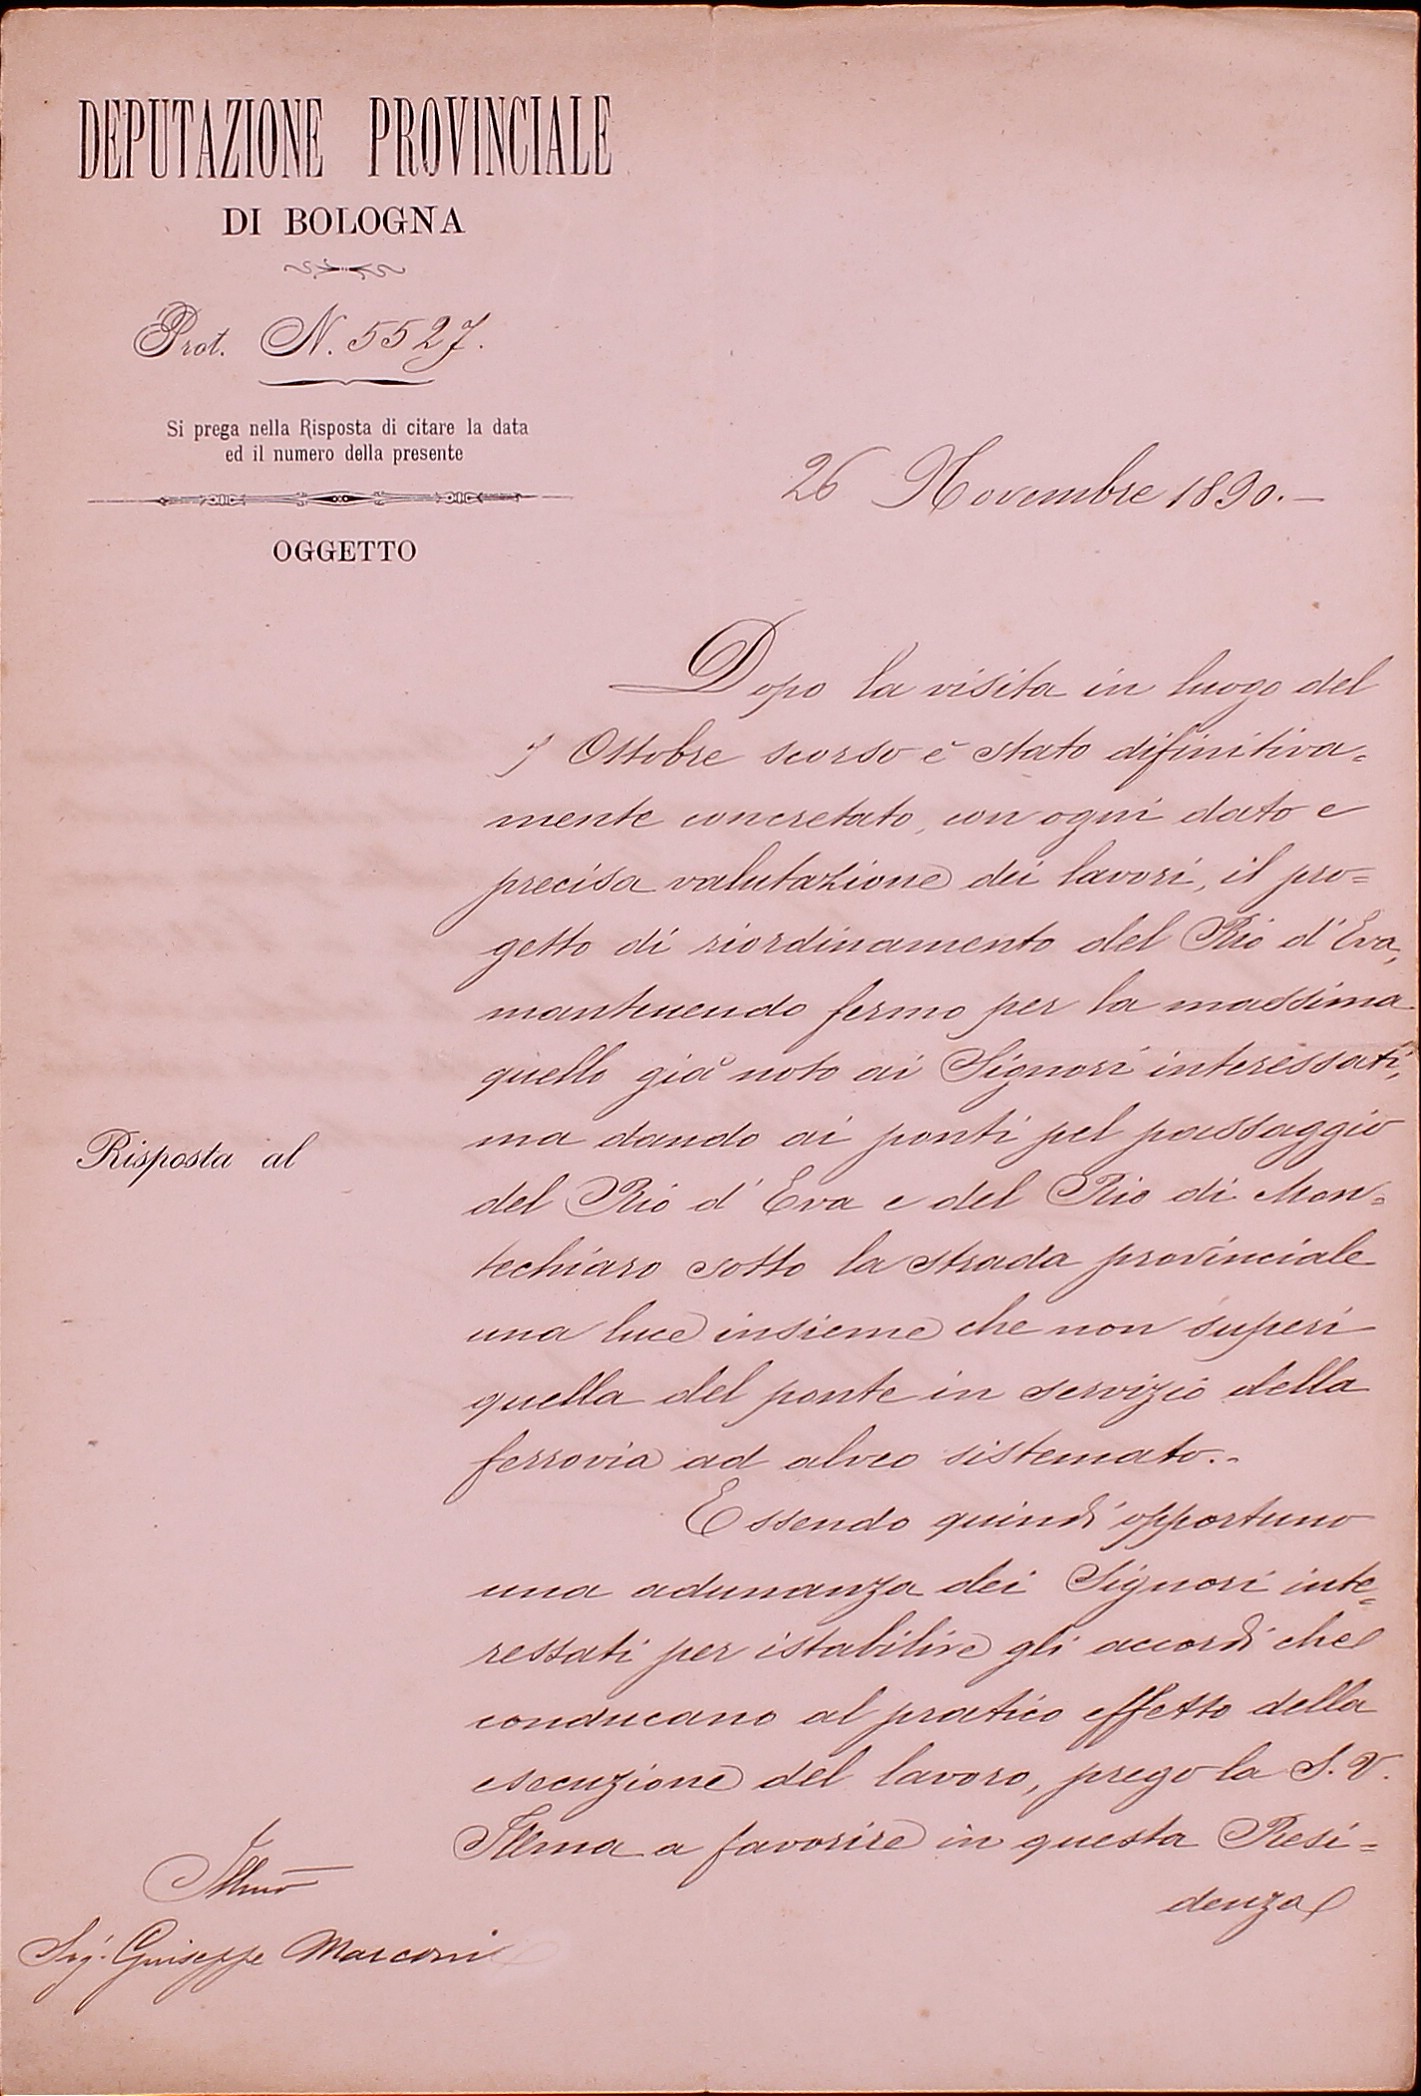 DEPUTAZIONE PROVINCIALE
DI BOLOGNA
Prot. N. 5527.
Si prega nella Risposta di citare la data
ed il numero della presente
26 Novembre 1890.-
OGGETTO
Dopo la visita in luogo del
Ottobre scorso è stato difinitiva=
mente concretato, con ogni dato e
precisa valutazione dei lavori, il pro=
getto di riordinamento del Rio d'Eva,
mantenendo fermo per la massima
quello già noto ai Signori interessati,
ma dando ai ponti pel passaggio
Risposta al
del Rio d'Eva e del Rio di Mon=
techiaro sotto la strada provinciale
una luce insieme che non superi
quella del ponte in servizio della
ferrovia ad alveo sistemato.-
Essendo quindi opportuno
una adunanza dei Signori inte=
ressati per istabilire gli accordi che
conducano al pratico effetto della
esecuzione del lavoro, prego la S. V.
Illma a favorire in questa Resi=
denza
Illmo
Sig. Giuseppe Marconi